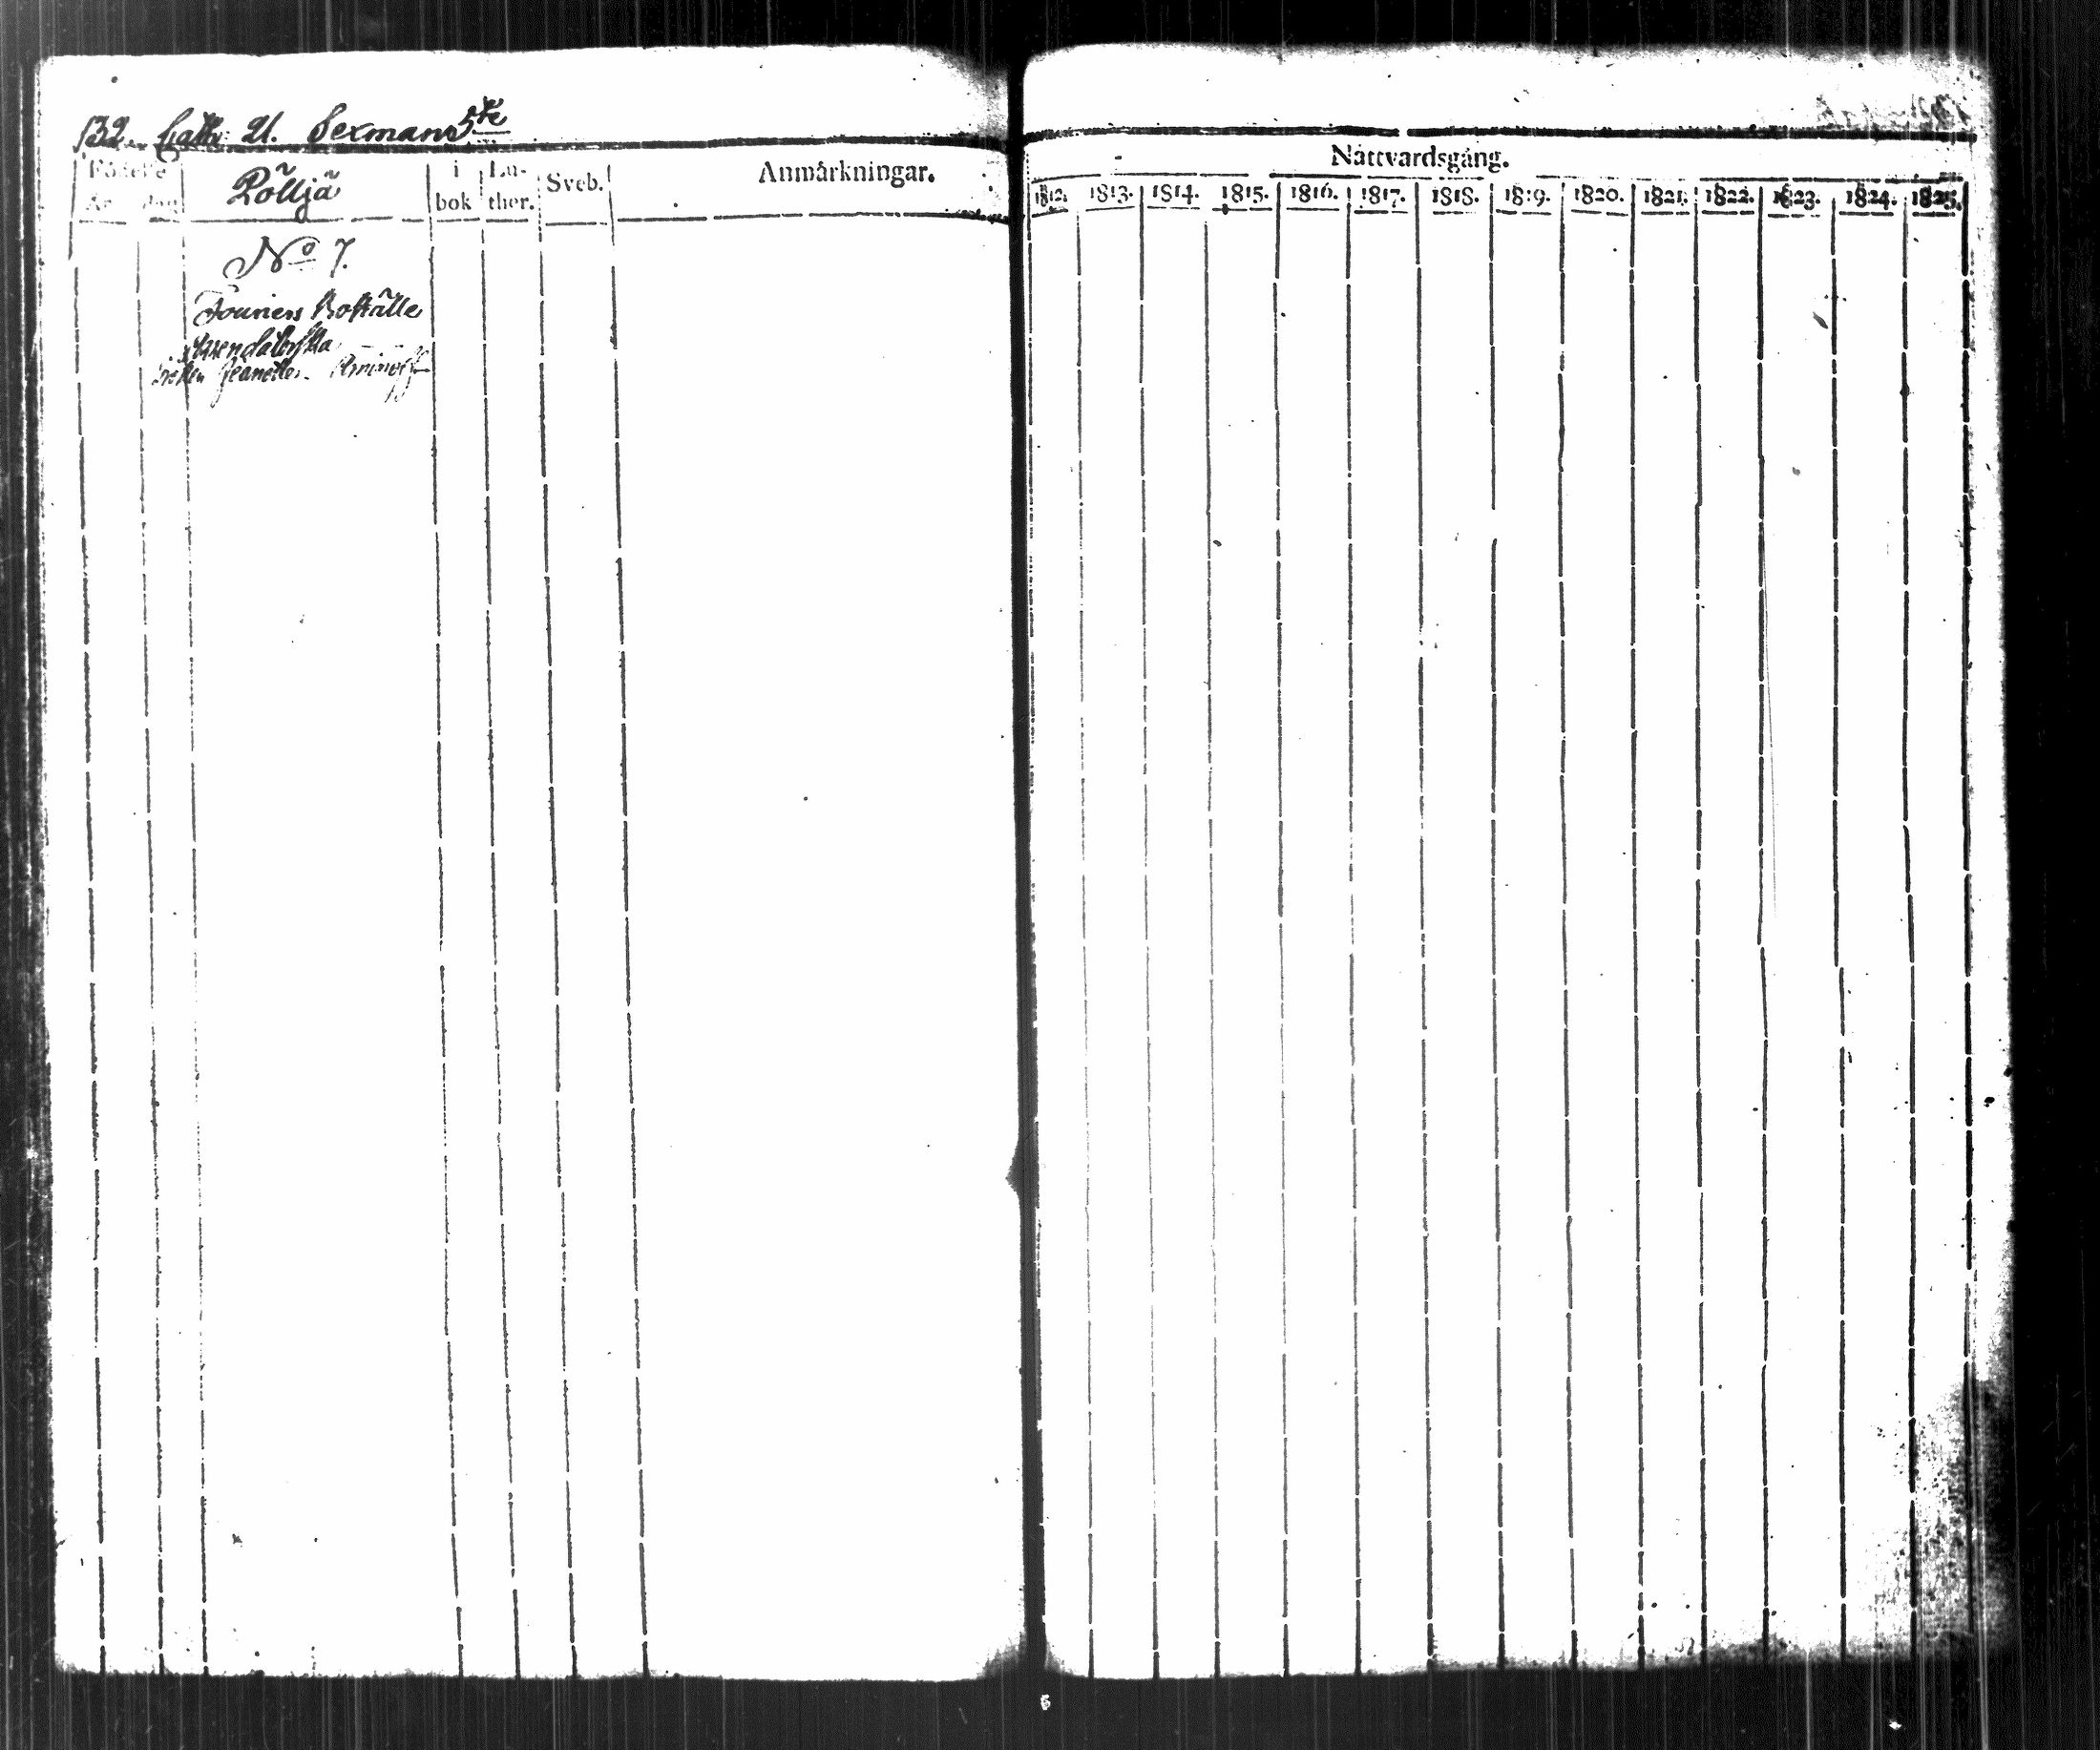 132. Cath: 21. Sexmans 5te
Födelse
År dag
Pölljä
i bok
Lu-ther.
Sveb.
Anmärkningar.
No 7.
Fouriers Boställe
Jeanette Aminoff
Nattvardsgång.
1812. 1813. 1814. 1815. 1816. 1817. 1818. 1819. 1820. 1821. 1822. 1823. 1824. 1825.